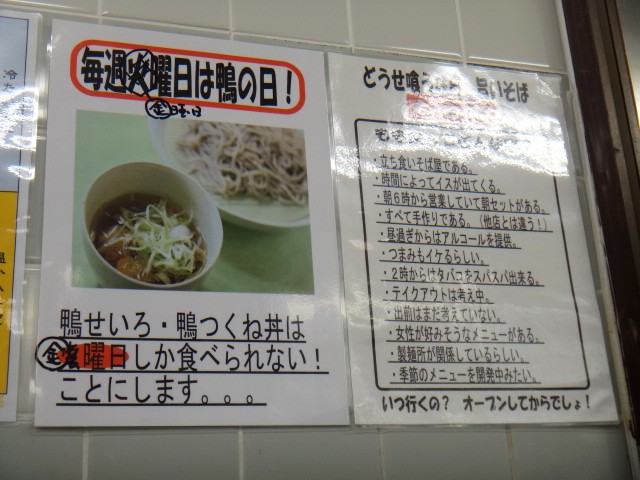 毎週火曜日は鴨の日！
金曜日
鴨せいろ・鴨つくね丼は
金曜日しか食べられない！
ことにします。。。
どうせ喰う 旨いそば
・立ち食いそば屋である。
・時間によってイスが出てくる。
・朝６時から営業していて朝セットがある。
・すべて手作りである。（他店とは違う！）
・昼過ぎからはアルコールを提供。
・つまみもイケるらしい。
・２時からはタバコをスパスパ出来る。
・テイクアウトは考え中。
・出前はまだ考えていない。
・女性が好みそうなメニューがある。
・製麺所が関係しているらしい。
・季節のメニューを開発中みたい。
いつ行くの？ オープンしてからでしょ！